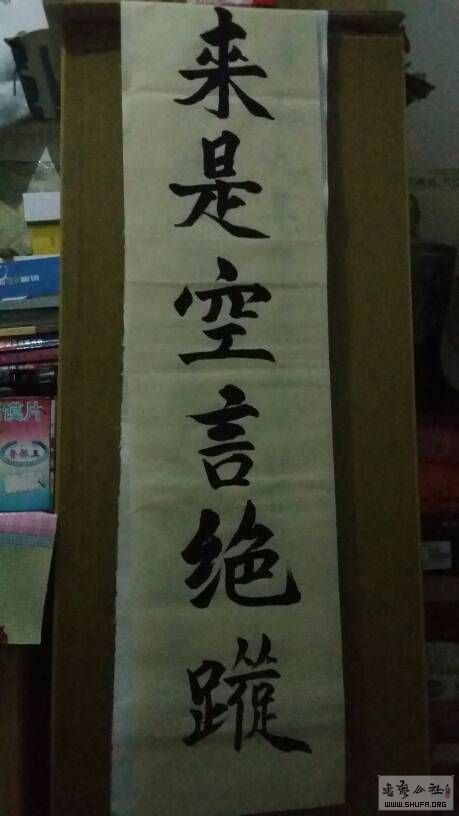 来是空言绝蹤
書藝公社
WWW.SHUFA.ORG